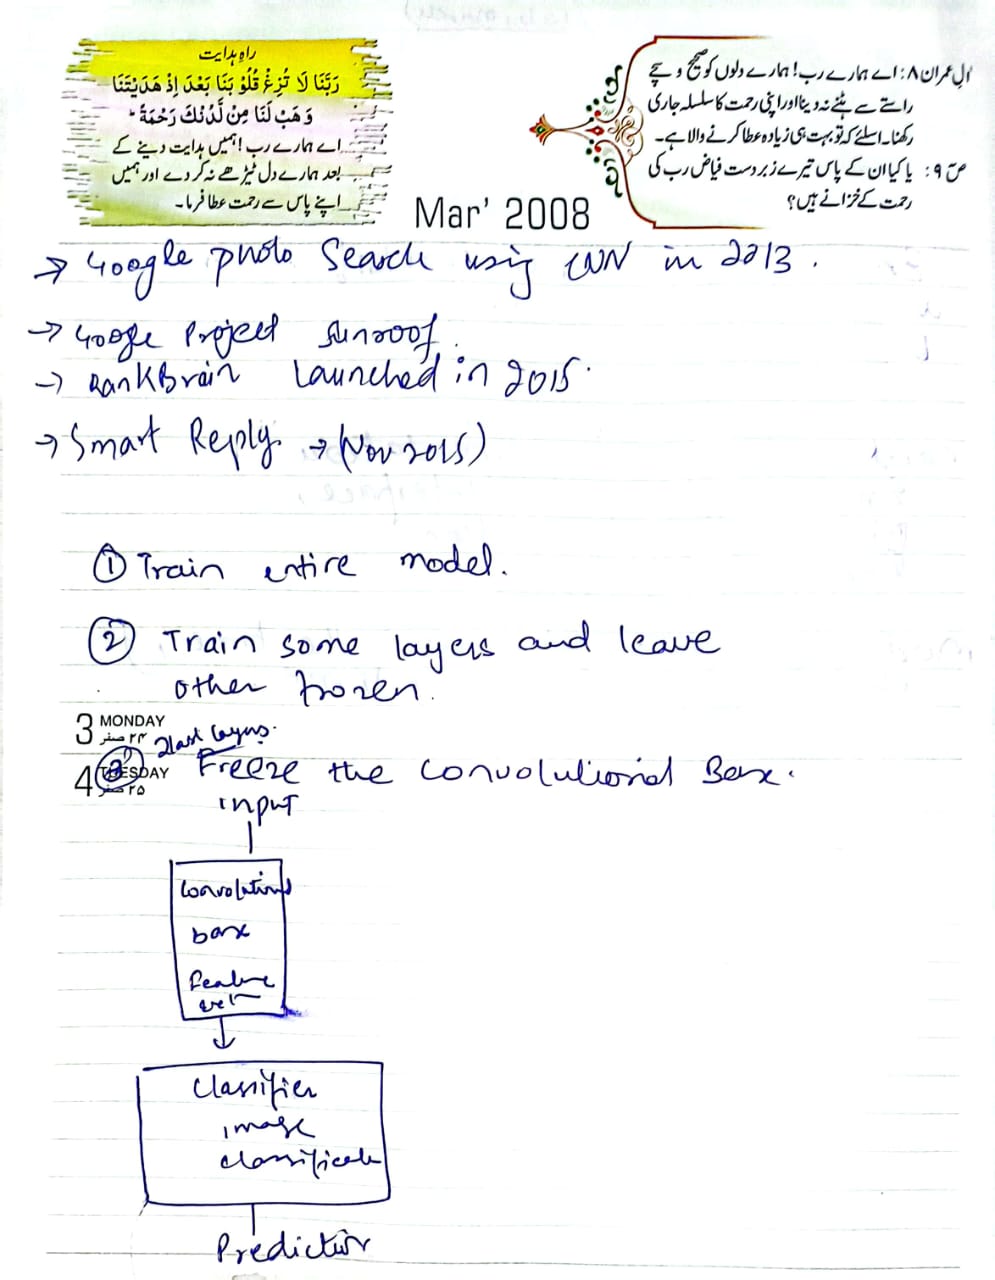 راہِ ہدایت
رَبَّنَا لَا تُزِغْ قُلُوْبَنَا بَعْدَ اِذْ هَدَيْتَنَا
وَهَبْ لَنَا مِنْ لَّدُنْكَ رَحْمَةً
اے ہمارے رب! ہمیں ہدایت دینے کے
بعد ہمارے دل ٹیڑھے نہ کر دے اور ہمیں
اپنے پاس سے رحمت عطا فرما۔
Mar' 2008
اٰل عمران ۸: اے ہمارے رب! ہمارے دلوں کو صحیح و سچے
راستے سے ہٹنے نہ دینا اور اپنی رحمت کا سلسلہ جاری
رکھنا۔ اسلئے کہ تو بہت ہی زیادہ عطا کرنے والا ہے۔
صٓ ۹: یا کیا ان کے پاس تیرے زبردست فیاض رب کی
رحمت کے خزانے ہیں؟
→ Google photo Search using CNN in 2013.
→ Google Project Sunroof.
→ RankBrain Launched in 2015.
→ Smart Reply → (Nov 2015)
① Train entire model.
② Train some layers and leave
other frozen.
3 MONDAY
۲۴ صفر
2 last layers.
4 TUESDAY
۲۵ صفر
③ Freeze the Convolutional Base.
input
Convolutional
base
feature
Classifier
image
classificate
Prediction